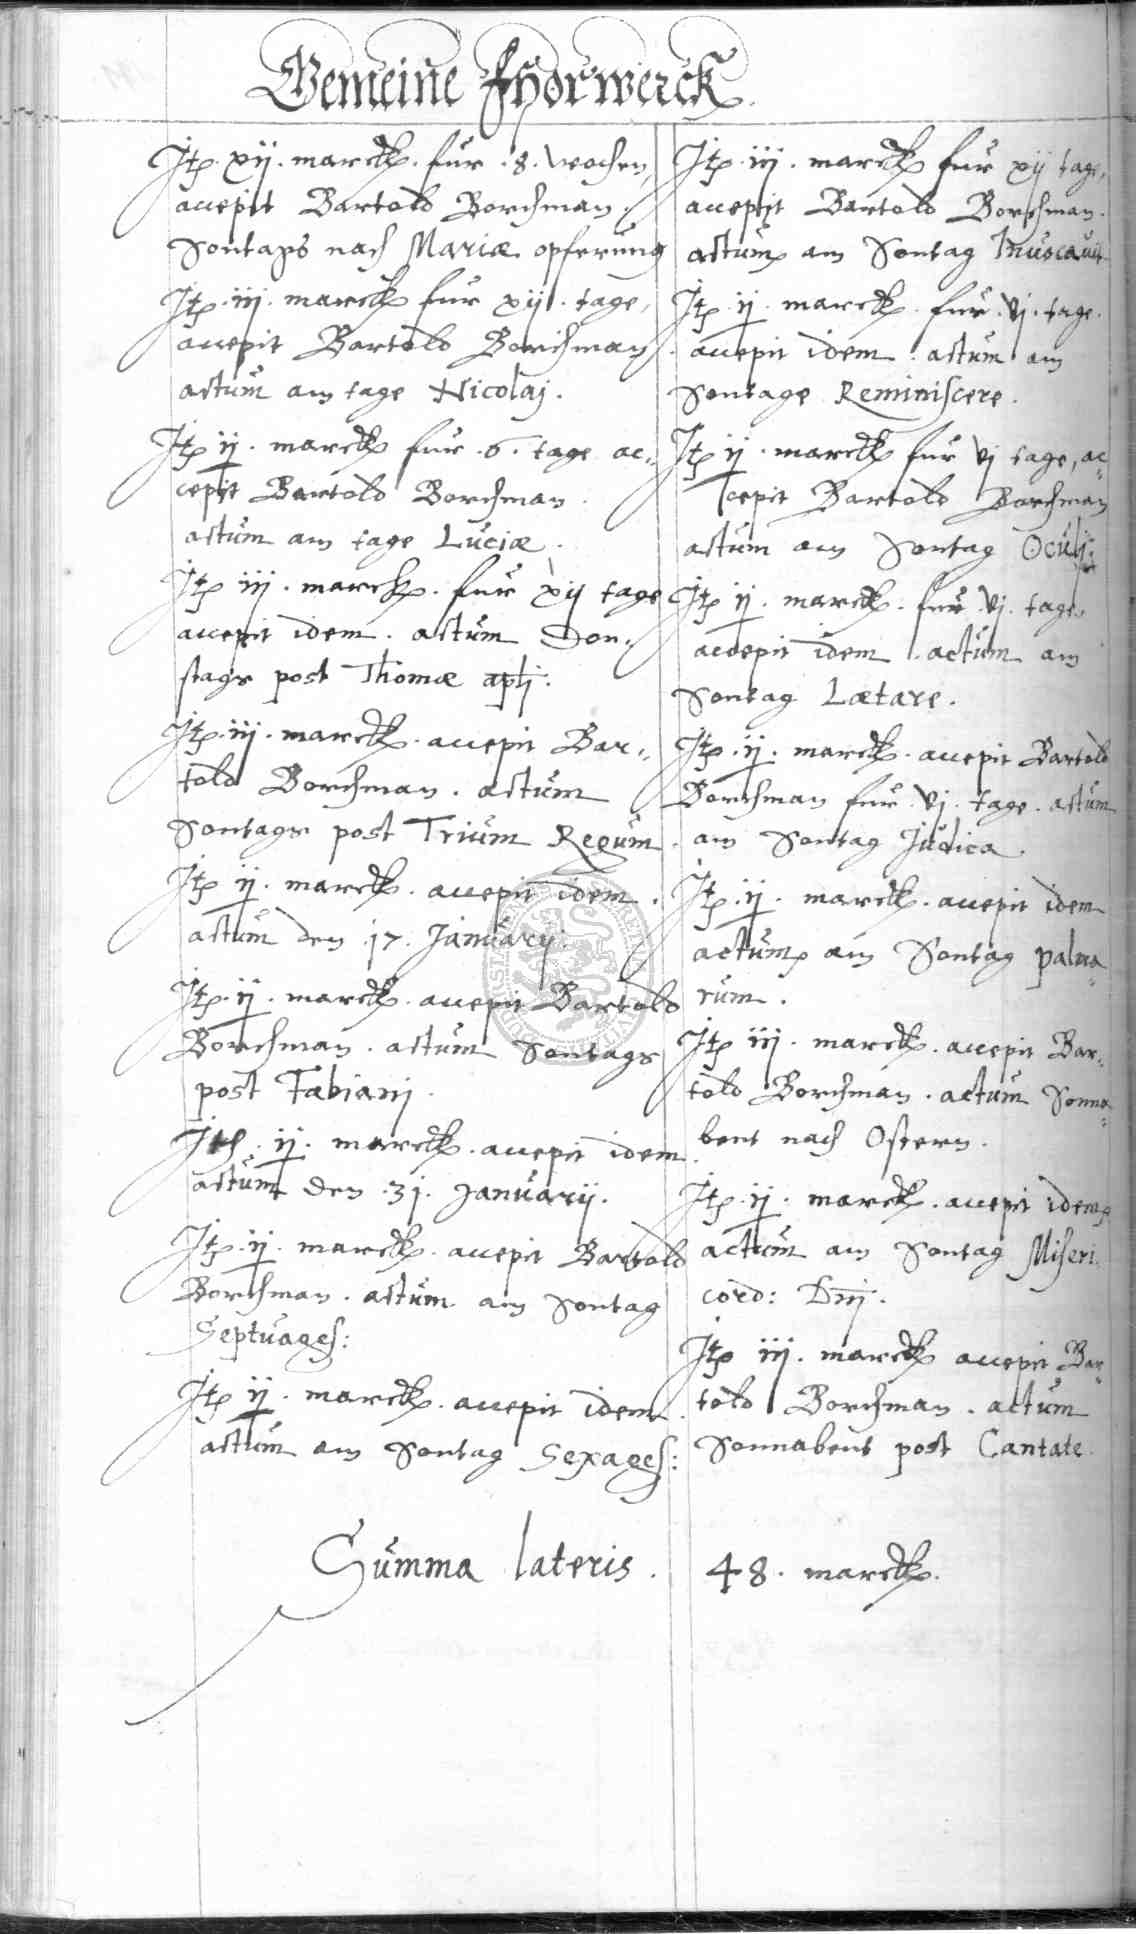 Gemeine Fhorwerck.
Itē. xij. marck. fur .8. wochen,
accepit Bartold Borchman.
Sontags nach Mariæ opferung
Itē. iij. marck fur xij. tage,
accepit Bartold Borchman
actum am tage Nicolaj.
Itē ij. marck fur .6. tage ac„
cepit Bartold Borchman.
actum am tage Luciæ.
Itē iij. marck. fur xij tage
accepit idem. actum Don„
stags post Thomæ aplj:
Itē. iij. marck. accepit Bar„
told Borchman. actum
Sontags post Trium Regum.
Itē ij. marck. accepit idem.
actum den .17. Januarij.
Itē. ij. marck. accepit Bartold
Borchman. actum Sontags
post Fabianj.
Itē. ij. marck. accepit idem.
actum den .31. Januarij.
Itē. ij. marck. accepit Bartold
Borchman. actum am Sontag
Septuages:
Itē ij. marck. accepit idem.
actum am Sontag Sexages:
Itē. iij. marck fur xij tage,
accepit Bartold Borchman.
actum am Sontag
Itē. ij. marck. fur. vj. tage.
accepit idem. actum am
Sontage Reminiscere.
Itē ij. marck fur vj tage, ac„
cepit Bartold Borchman
actum am Sontag Oculj:
Itē ij. marck. fur vj. tage
accepit idem. actum am
Sontag Lætare.
Itē. ij. marck. accepit Bartold
Borchman fur. vj. tage. actum
am Sontag Judica.
Itē. ij. marck. accepit idem
actum am Sontag palma„
rum.
Itē iij. marck. accepit Bar„
told Borchman. actum Sonna„
bent nach Ostern.
Itē. ij. marck. accepit idem
actum am Sontag Miseri„
cord: Dnj.
Itē iij. marck accepit Bar„
told Borchman. actum
Sonnabent post Cantate.
Summa lateris. 48. marck.